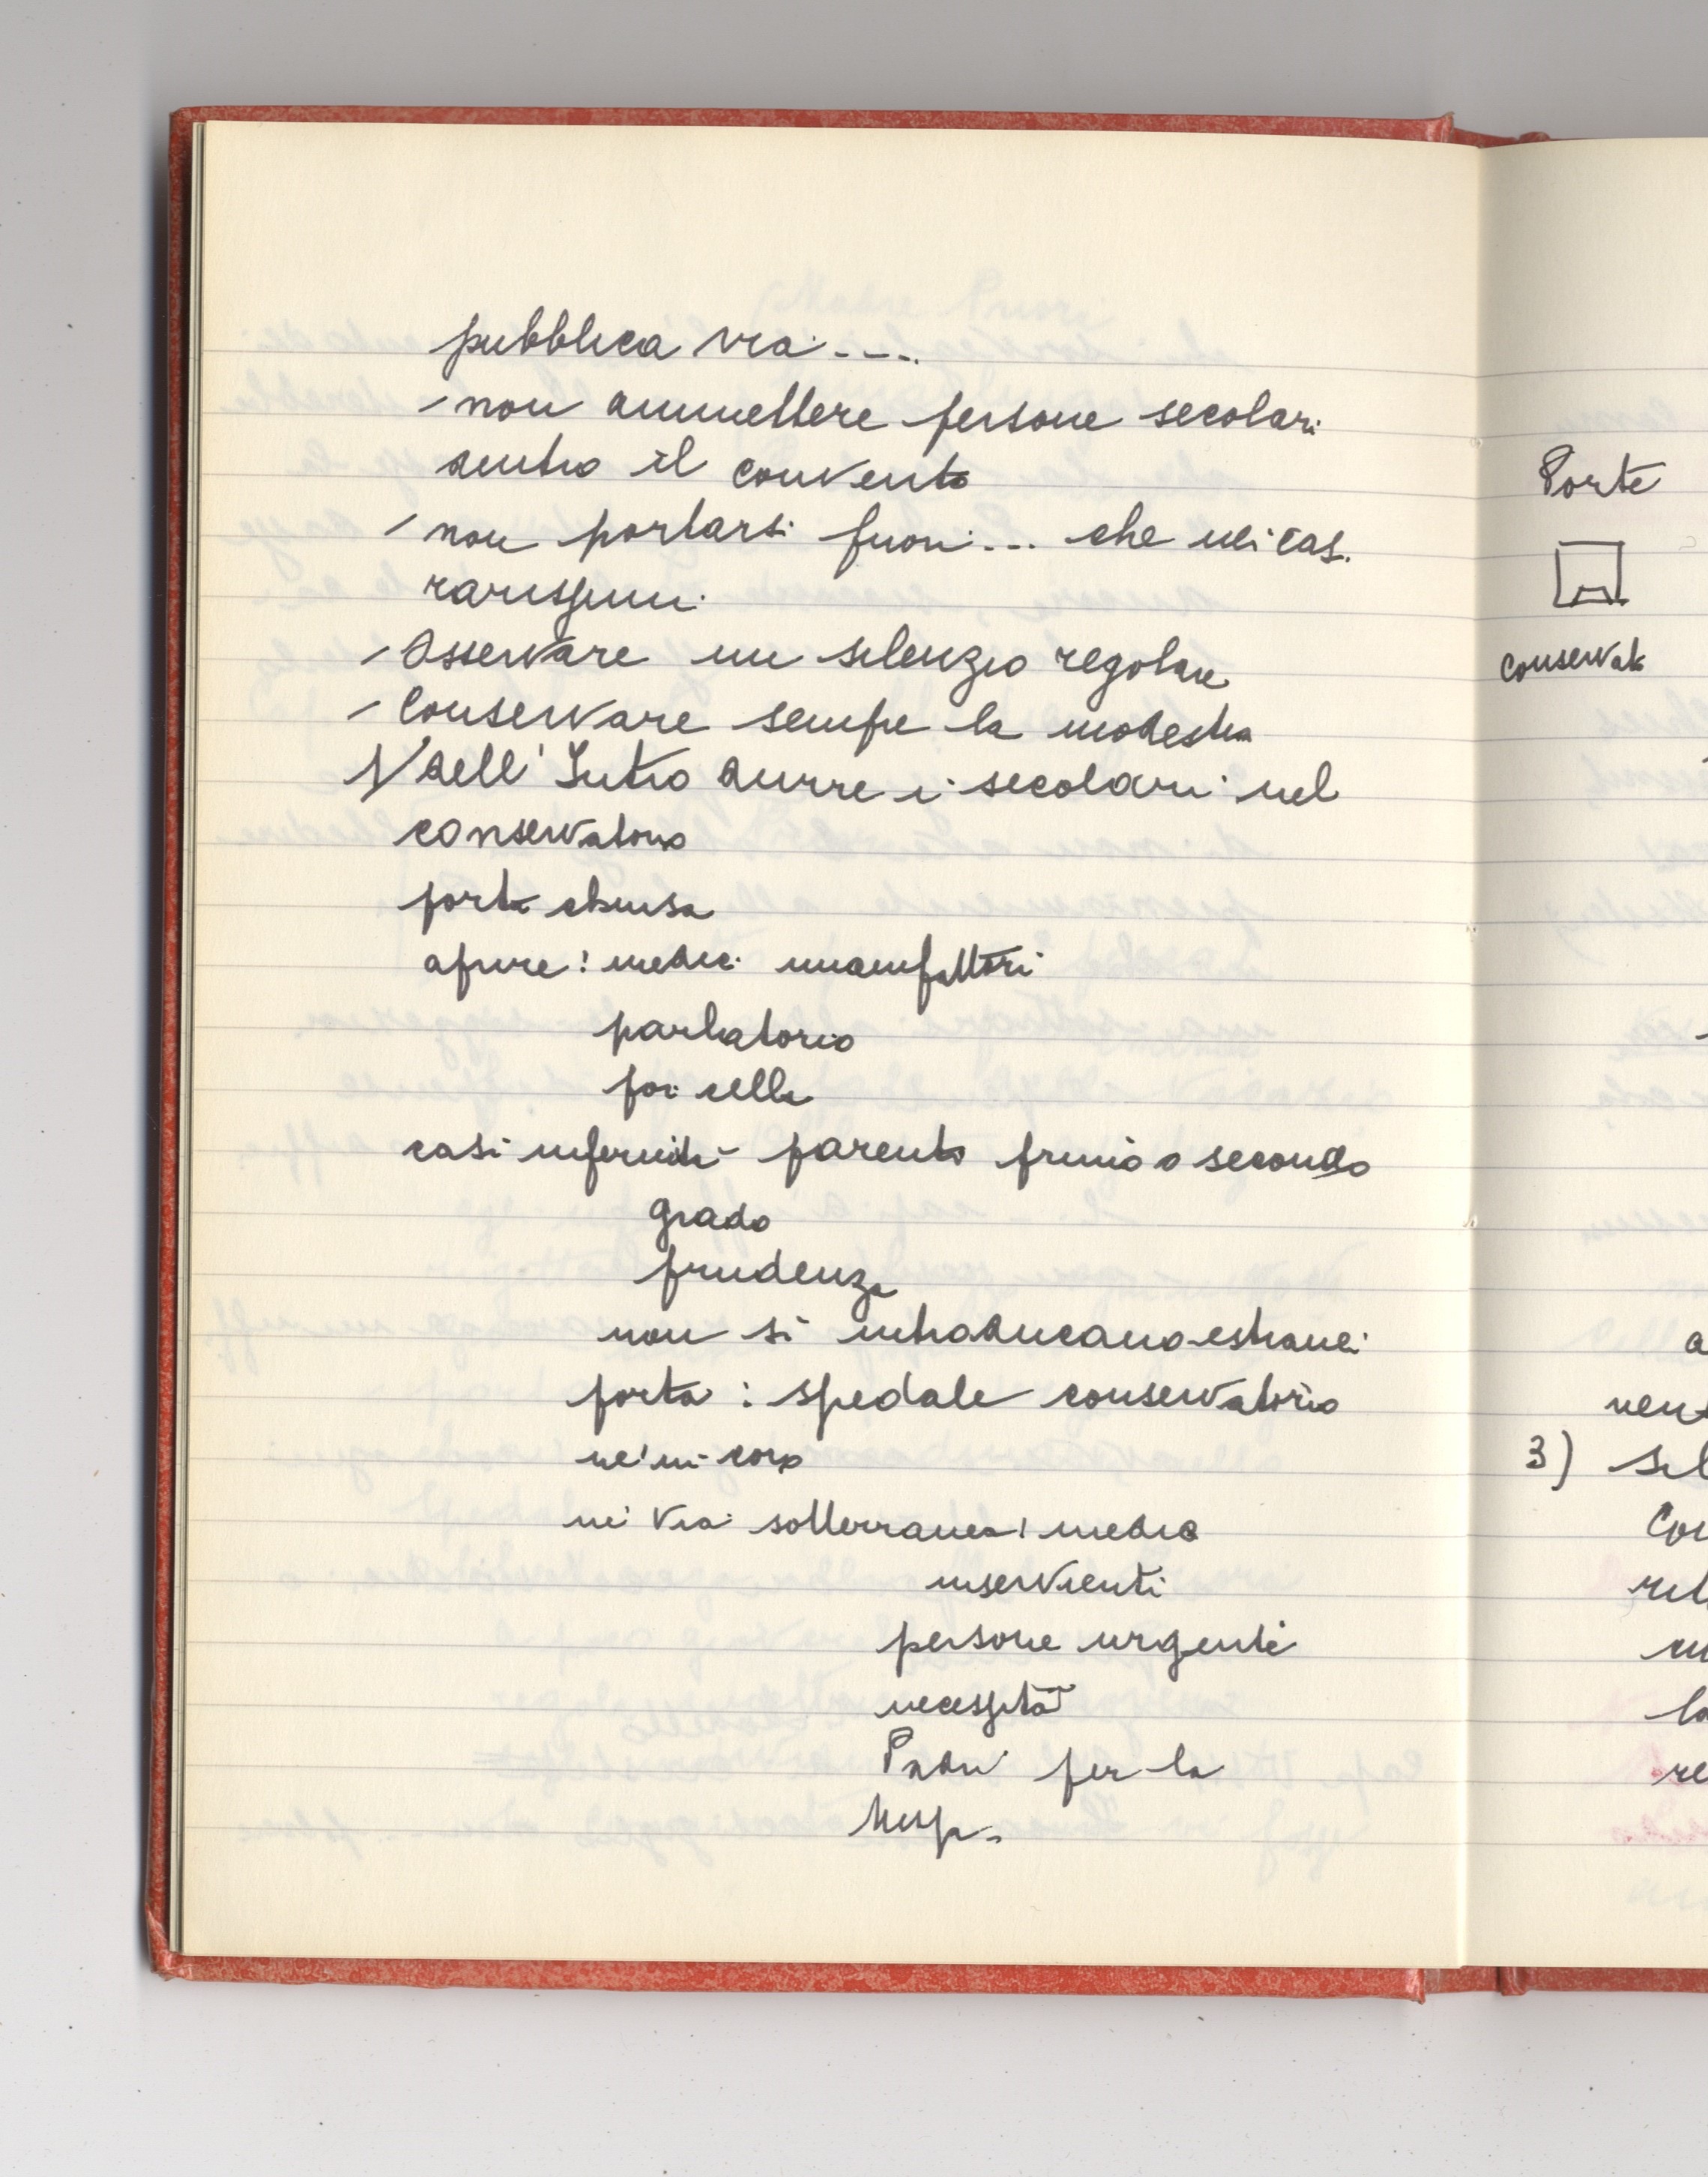 pubblica via....
- non ammettere persone secolari
dentro il convento
- non portarsi fuori... che nei cas.
rarissimi
- Osservare un silenzio regolare
- Conservare sempre la modestia
1) dell'Introdurre i secolari nel
conservatorio
porta chiusa
aprire: medici manifattori
parlatorio
poi cella
casi infermità - parente primo o secondo
grado
prudenza
non si introducano estranei
porta: spedale conservatorio
nè in coro
nè via sotterranea: medico
inservienti
persone urgenti
necessità
Padri per la
Porte
conservat
3) Sil